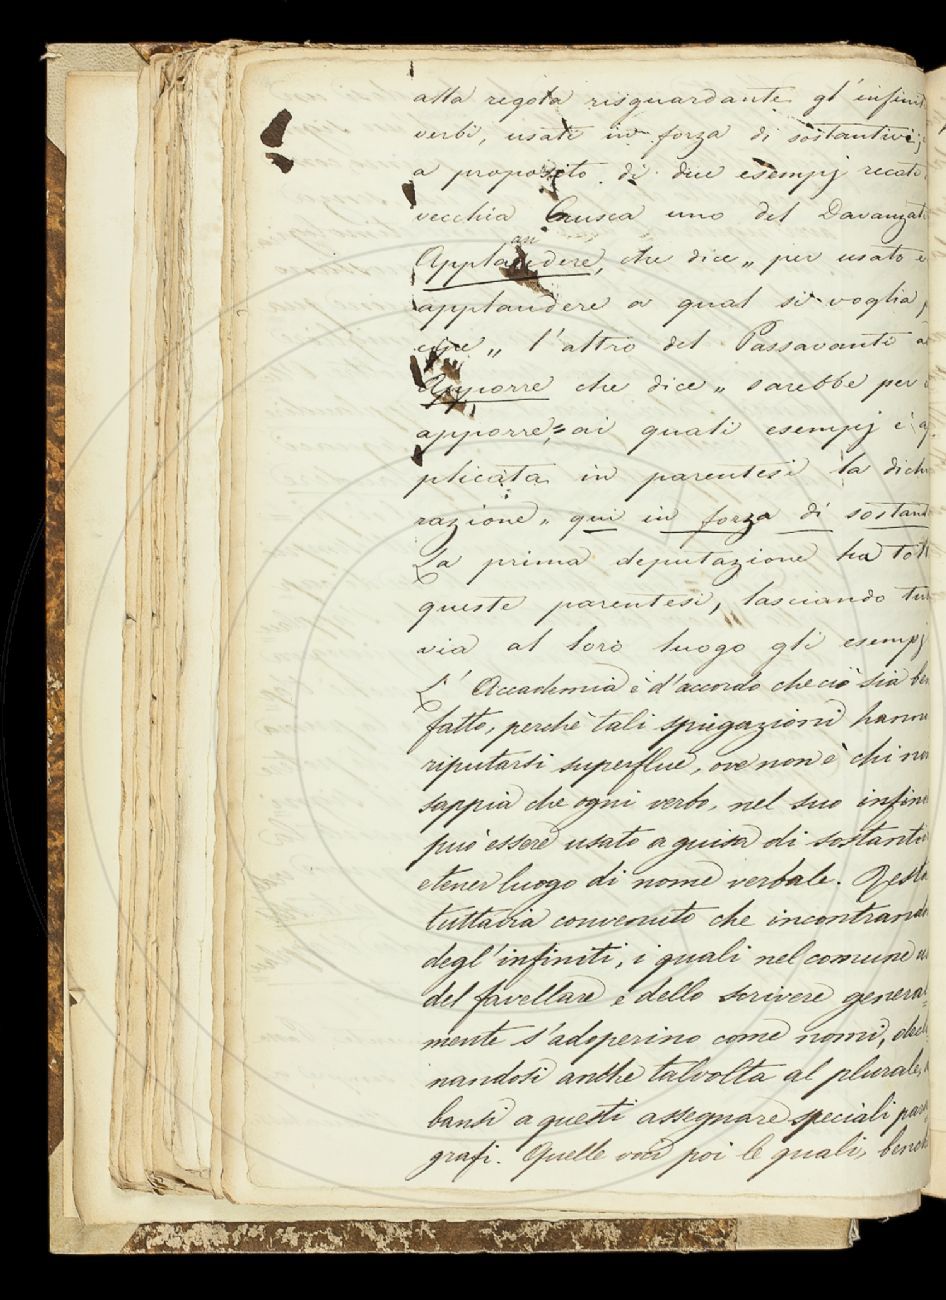 alla regola risguardante gl'infini
verbi, usati in forza di sostantivi;
a proposito di due esempj recati
vecchia Crusca uno del Davanzati
au
Applaudere, che dice „ per usato
applaudere a qual si voglia
„ l'altro del Passavanti
Apporre che dice „ sarebbe per
apporre,„ ai quali esempj è
plicata in parentesi la dich
razione „ qui in forza di sostant
La prima deputazione ha tol
queste parentesi, lasciando tut
via al loro luogo gli esempj
L'Accademia è d'accordo che ciò sia ben
fatto, perchè tali spiegazioni hanno
riputarsi superflue, ove non è chi non
sappia che ogni verbo, nel suo infini
può essere usato a guisa di sostanti
e tener luogo di nome verbale. Resta
tuttavia convenuto che incontrando
degl'infiniti, i quali nel comune u
del favellare e dello scrivere general=
mente s'adoperino come nomi, decli
nandosi anche talvolta al plurale,
bansi a questi assegnare speciali para
grafi. Quelle voci poi le quali, bench